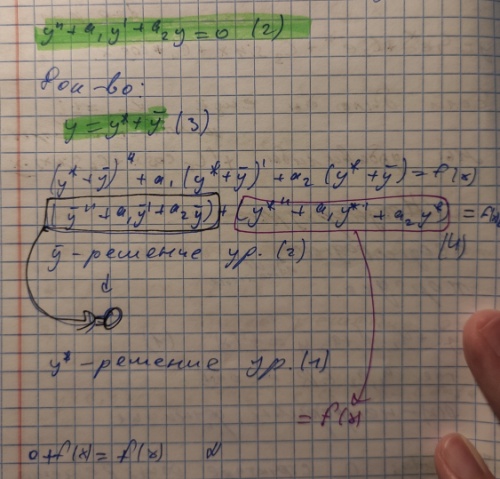 y'' + a₁y' + a₂y = 0 (2)
Док-во:
y = y* + ȳ (3)
(y* + ȳ)'' + a₁(y* + ȳ)' + a₂(y* + ȳ) = f(x)
(ȳ'' + a₁ȳ' + a₂ȳ) + (y*'' + a₁y*' + a₂y*) = f(x)
(4)
ȳ - решение ур. (2)
↓
= 0
y* - решение ур. (1)
= f(x)
0 + f(x) = f(x)